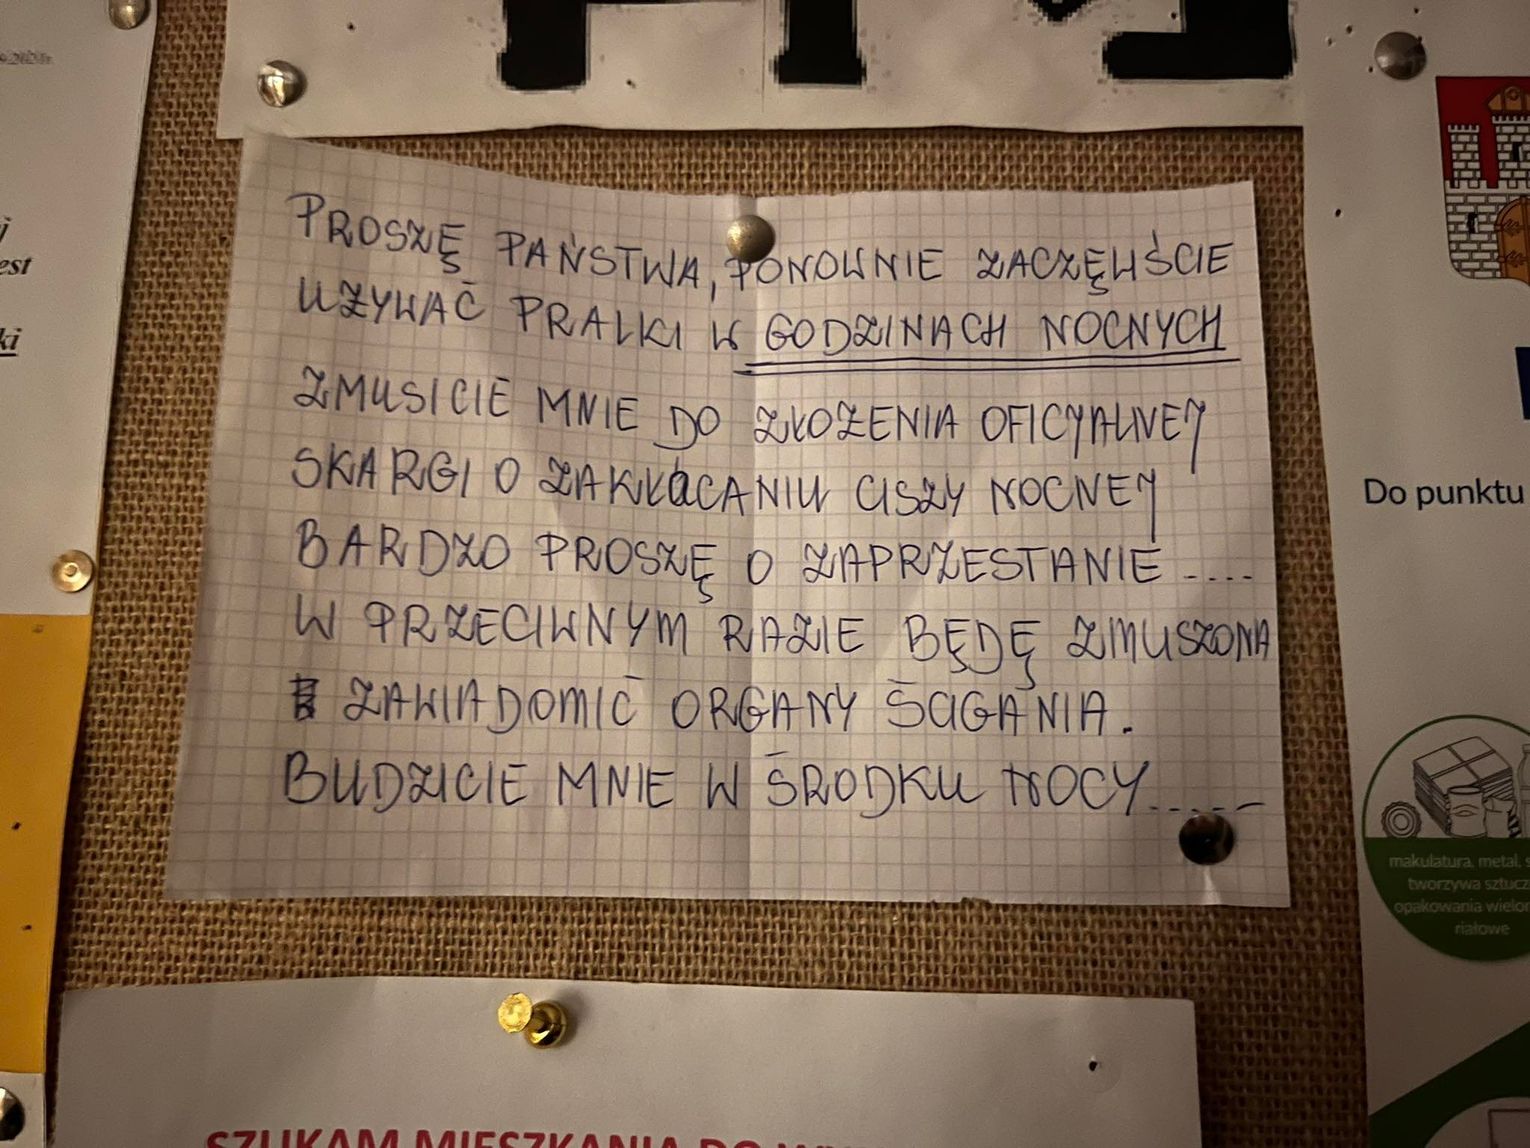 est
ki
PROSZĘ PAŃSTWA, PONOWNIE ZACZĘLIŚCIE
UZYWAĆ PRALKI W GODZINACH NOCNYCH
ZMUSICIE MNIE DO ZŁOZENIA OFICJALNEJ
SKARGI O ZAKŁÓCANIU CISZY NOCNEJ
BARDZO PROSZĘ O ZAPRZESTANIE ....
W PRZECIWNYM RAZIE BĘDĘ ZMUSZONA
ZAWIADOMIĆ ORGANY ŚCIGANIA.
BUDZICIE MNIE W ŚRODKU NOCY.....
Do punktu
makulatura, metal, s
tworzywa sztucz
opakowania wielo
riałowe
SZUKAM MIESZKANIA DO